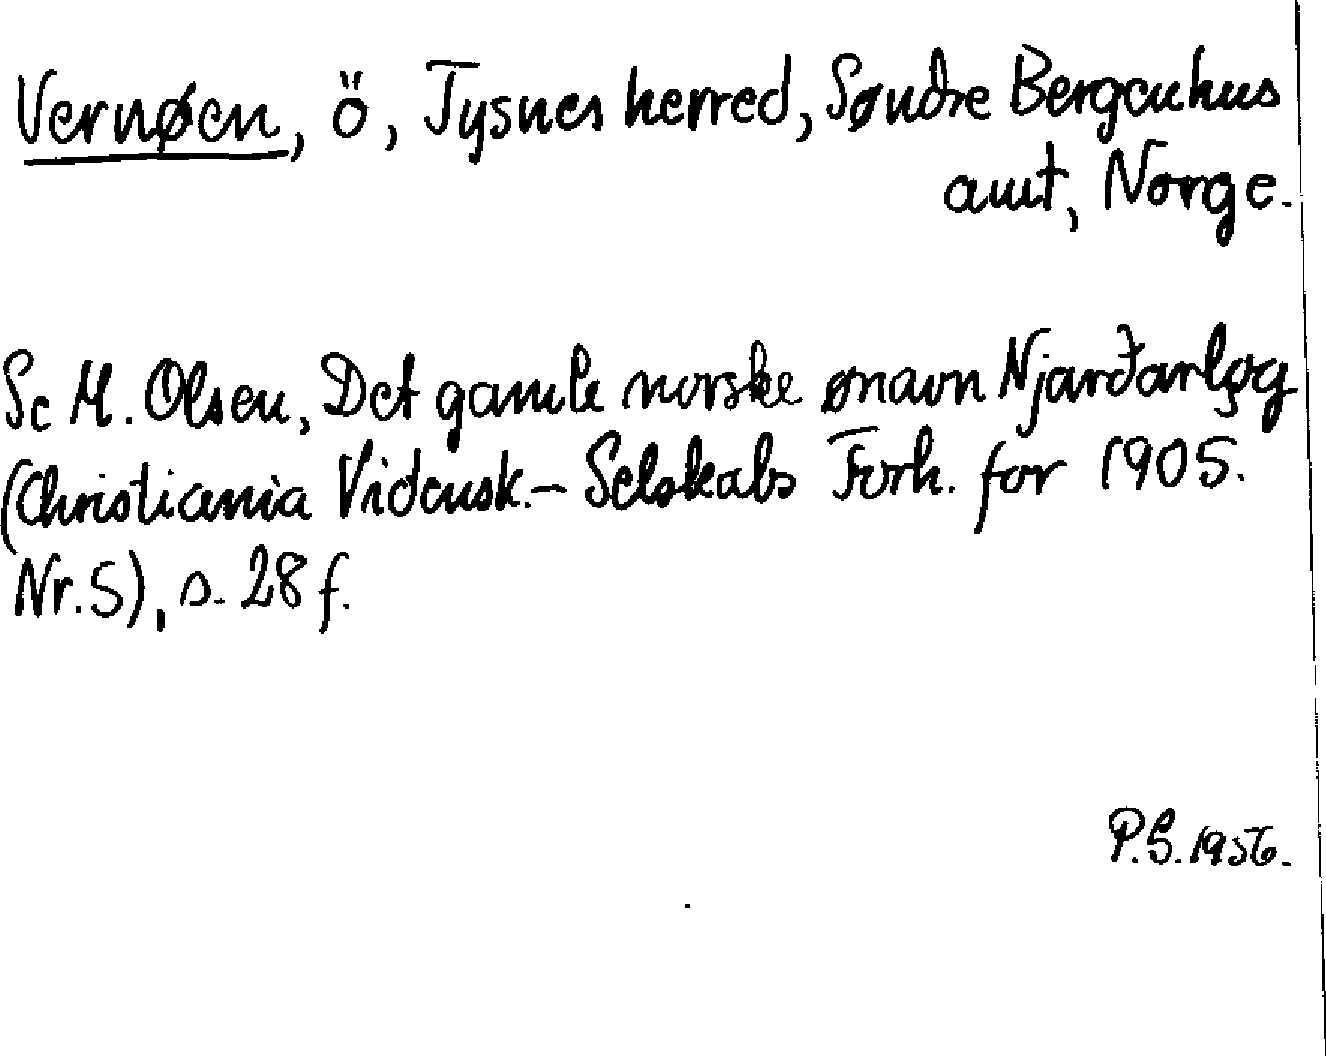 Vernøen, ö, Tysnes herred, Søndre Bergenhus
amt, Norge.
Se M. Olsen, Det gamle norske ønavn Njarðarlǫg
(Christiania Vidensk.-Selskabs Forh. for 1905.
Nr. 5), s. 28 f.
P.S. 1956.